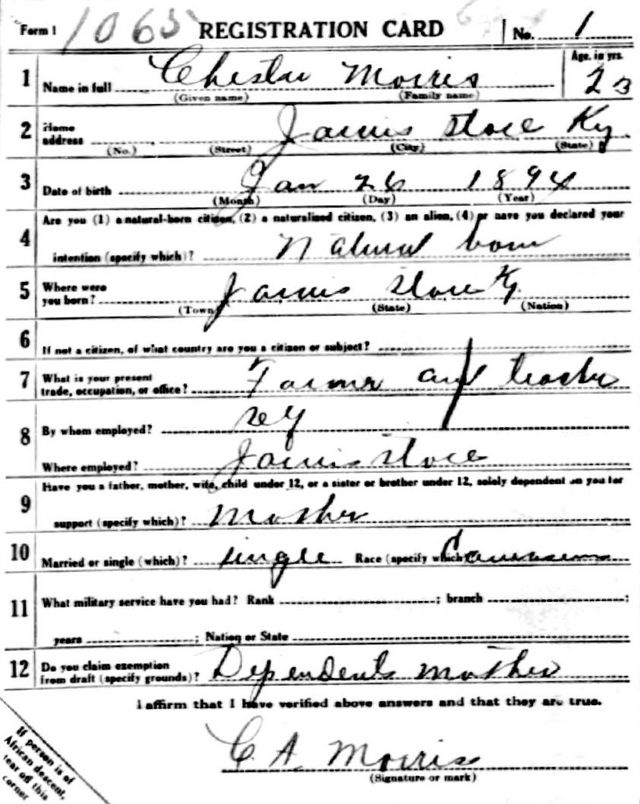 Form 1 1065 REGISTRATION CARD No. 1
1 Name in full Chester Morris Age, in yrs. 23
(Given name) (Family name)
2 Home address Jarvis Store Ky
(No.) (Street) (City) (State)
3 Date of birth Jan 26 1894
(Month) (Day) (Year)
Are you (1) a natural-born citizen, (2) a naturalized citizen, (3) an alien, (4) or have you declared your
4 intention (specify which)? Natural born
5 Where were you born? Jarvis Store Ky
(Town) (State) (Nation)
6 If not a citizen, of what country are you a citizen or subject?
7 What is your present trade, occupation, or office? Farmer and teacher
8 By whom employed? self
Where employed? Jarvis Store
Have you a father, mother, wife, child under 12, or a sister or brother under 12, solely dependent on you for
9 support (specify which)? Mother
10 Married or single (which)? single Race (specify which)? Caucasian
11 What military service have you had? Rank ; branch ;
years ; Nation or State
12 Do you claim exemption from draft (specify grounds)? Dependents mother
I affirm that I have verified above answers and that they are true.
C A Morris
(Signature or mark)
If person is of
African descent,
tear off this
corner